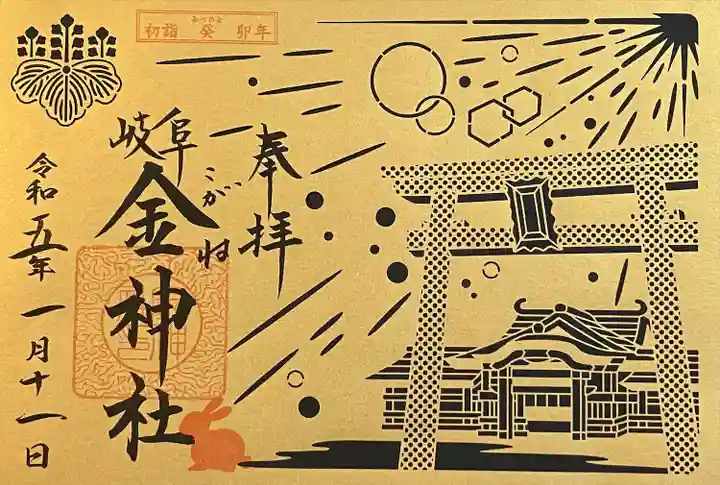 みづのと
初詣 癸卯年
奉拝
岐阜
こがね
金神社
令和五年一月十一日